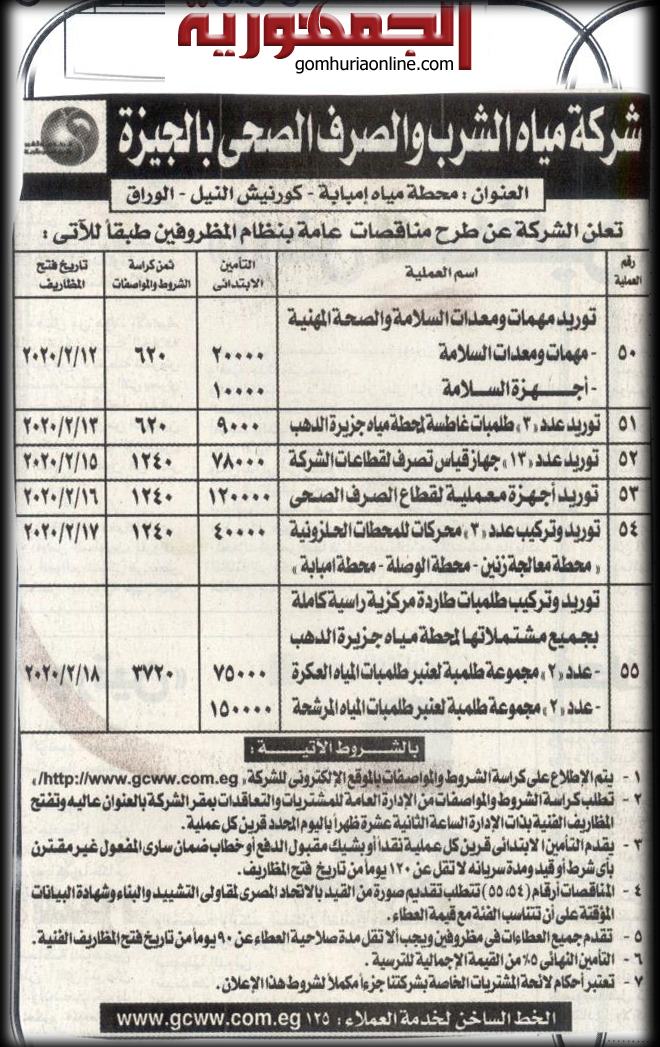 الجمهورية
gomhuriaonline.com
شركة مياه الشرب والصرف الصحى بالجيزة
العنوان : محطة مياه إمبابة - كورنيش النيل - الوراق
تعلن الشركة عن طرح مناقصات عامة بنظام المظروفين طبقاً للآتى :
رقم العملية | اسم العملية | التأمين الابتدائى | ثمن كراسة الشروط والمواصفات | تاريخ فتح المظاريف
توريد مهمات ومعدات السلامة والصحة المهنية
٥٠ | - مهمات ومعدات السلامة | ٢٠٠٠٠ | ٦٢٠ | ٢٠٢٠/٢/١٢
- أجهزة السلامة | ١٠٠٠٠
٥١ | توريد عدد «٣» طلمبات غاطسة لمحطة مياه جزيرة الدهب | ٩٠٠٠ | ٦٢٠ | ٢٠٢٠/٢/١٣
٥٢ | توريد عدد «١٣» جهاز قياس تصرف لقطاعات الشركة | ٧٨٠٠٠ | ١٢٤٠ | ٢٠٢٠/٢/١٥
٥٣ | توريد أجهزة معملية لقطاع الصرف الصحى | ١٢٠٠٠٠ | ١٢٤٠ | ٢٠٢٠/٢/١٦
٥٤ | توريد وتركيب عدد «٣» محركات للمحطات الحلزونية | ٤٠٠٠٠ | ١٢٤٠ | ٢٠٢٠/٢/١٧
« محطة معالجة زنين - محطة الوصلة - محطة امبابة »
توريد وتركيب طلمبات طاردة مركزية راسية كاملة
بجميع مشتملاتها لمحطة مياه جزيرة الدهب
٥٥ | - عدد «٢» مجموعة طلمبة لعنبر طلمبات المياه العكرة | ٧٥٠٠٠ | ٣٧٢٠ | ٢٠٢٠/٢/١٨
- عدد «٢» مجموعة طلمبة لعنبر طلمبات المياه المرشحة | ١٥٠٠٠٠
بالشروط الاتية :
١ - يتم الإطلاع على كراسة الشروط والمواصفات بالموقع الإلكترونى للشركة «http://www.gcww.com.eg/
٢ - تطلب كراسة الشروط والمواصفات من الإدارة العامة للمشتريات والتعاقدات بمقر الشركة بالعنوان عاليه وتفتح
المظاريف الفنية بذات الإدارة الساعة الثانية عشرة ظهراً باليوم المحدد قرين كل عملية.
٣ - يقدم التأمين الابتدائى قرين كل عملية نقداً أو بشيك مقبول الدفع أو خطاب ضمان سارى المفعول غير مقترن
بأى شرط أو قيد ومدة سريانه لا تقل عن ١٢٠ يوماً من تاريخ فتح المظاريف.
٤ - المناقصات أرقام (٥٤، ٥٥) تتطلب تقديم صورة من القيد بالاتحاد المصرى لمقاولى التشييد والبناء وشهادة البيانات
المؤقتة على أن تتناسب الفئة مع قيمة العطاء.
٥ - تقدم جميع العطاءات فى مظروفين ويجب ألا تقل مدة صلاحية العطاء عن ٩٠ يوماً من تاريخ فتح المظاريف الفنية.
٦ - التأمين النهائى ٥٪ من القيمة الإجمالية للترسية .
٧ - تعتبر أحكام لائحة المشتريات الخاصة بشركتنا جزءاً مكملاً لشروط هذا الإعلان.
الخط الساخن لخدمة العملاء : ١٢٥ www.gcww.com.eg